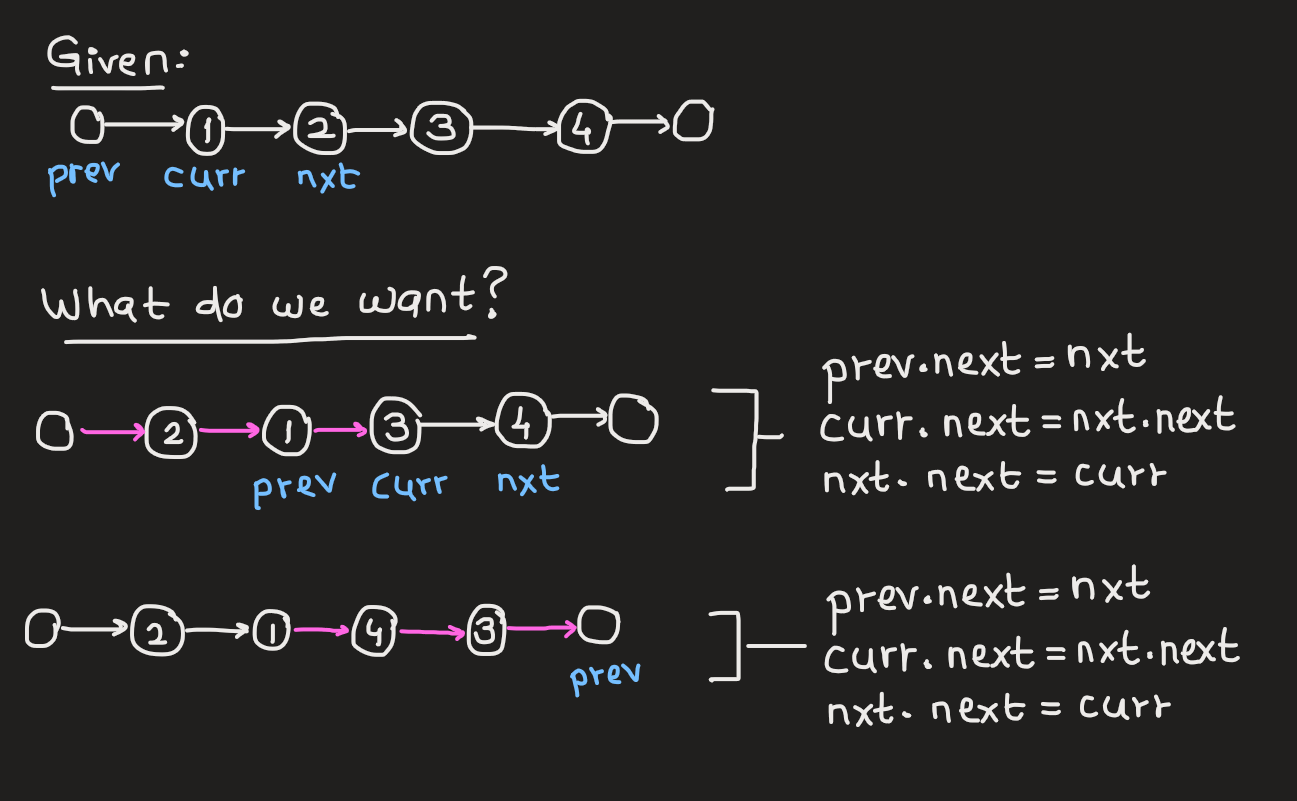 Given:
1 2 3 4
prev curr nxt
What do we want?
2 1 3 4
prev curr nxt
prev.next = nxt
curr. next = nxt.next
nxt. next = curr
2 1 4 3
prev
prev.next = nxt
curr. next = nxt.next
nxt. next = curr